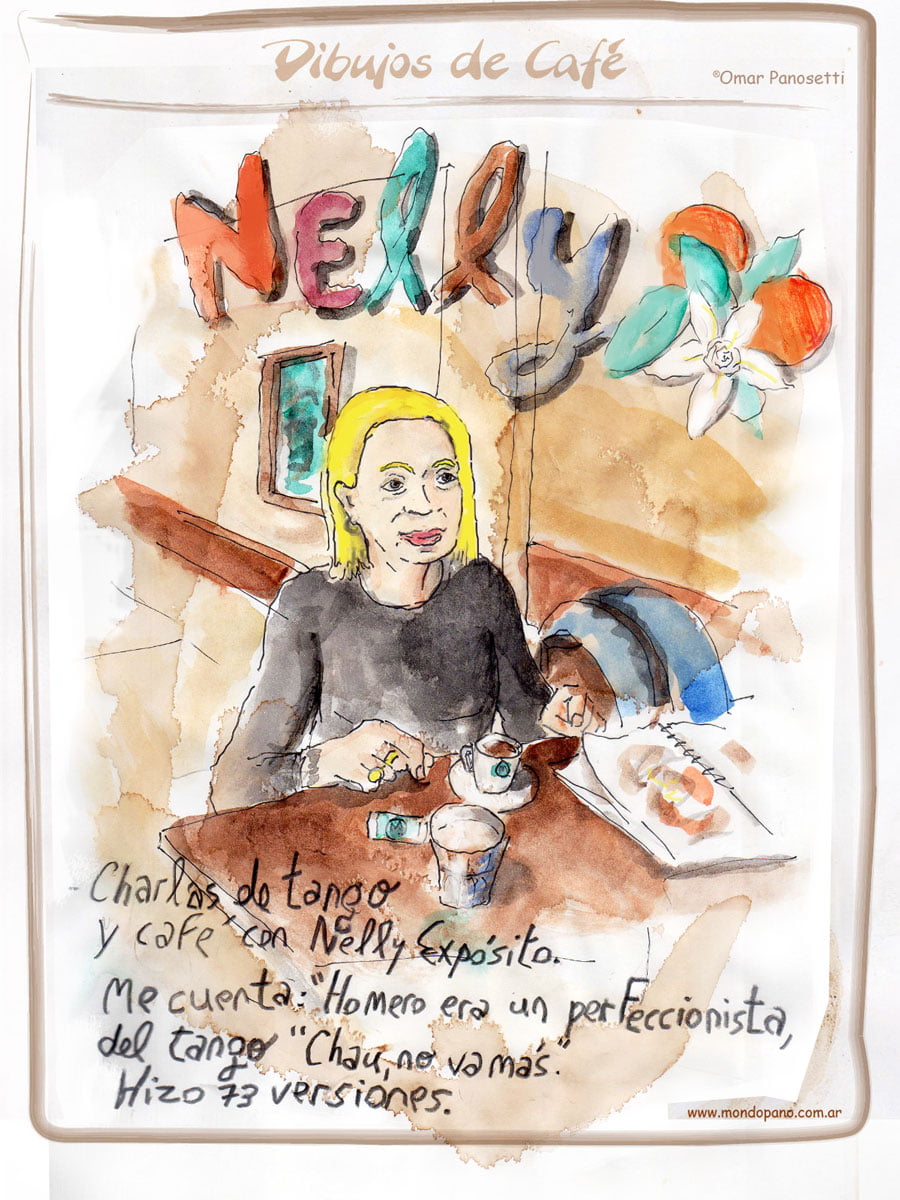 Dibujos de Café
©Omar Panosetti
Nelly
Charlas de tango
y café con Nelly Expósito.
Me cuenta: "Homero era un perfeccionista,
del tango "Chau, no va más".
Hizo 73 versiones.
www.mondopano.com.ar